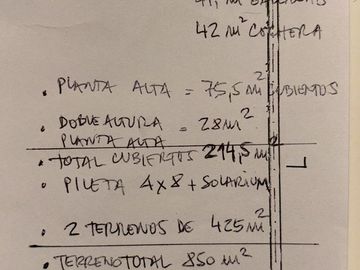 42 m² COCHERA
• PLANTA ALTA = 75,5 m² CUBIERTOS
• DOBLE ALTURA = 28 m²
PLANTA ALTA
• TOTAL CUBIERTOS 214,5 m²
• PILETA 4x8 + SOLARIUM
• 2 TERRENOS DE 425 m²
• TERRENO TOTAL 850 m²